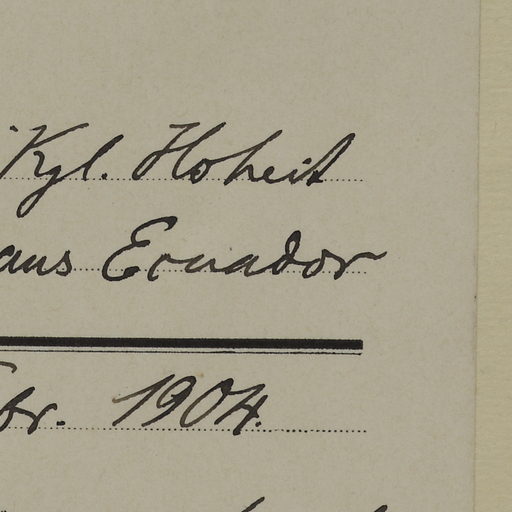 Kgl. Hoheit
aus Ecuador
br. 1904.